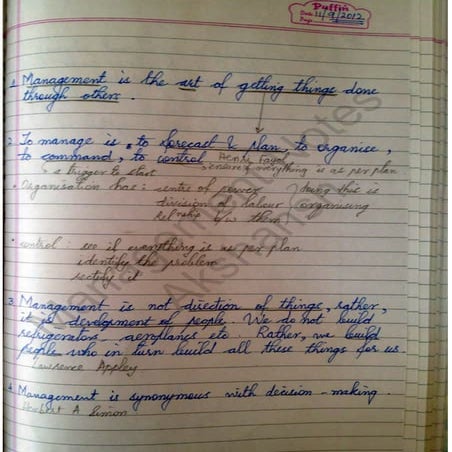 Puffin
Date 11/9/2012
Page
1. Management is the art of getting things done
through others.
2. To manage is, to forecast & plan, to organise,
to command, to control Henri Fayol
a trigger to start ensure everything is as per plan
• Organisation has: centre of power
division of labour
r/nship b/w them
Doing this is
organising
• control: see if everything is as per plan
identify the problem
rectify it
3. Management is not direction of things, rather,
it is development of people. We do not build
refrigerators, aeroplanes etc. Rather, we build
people who in turn build all these things for us.
Lawrence Appley
4. Management is synonymous with decision-making.
Herbert A Simon
Management Notes
Akshansh